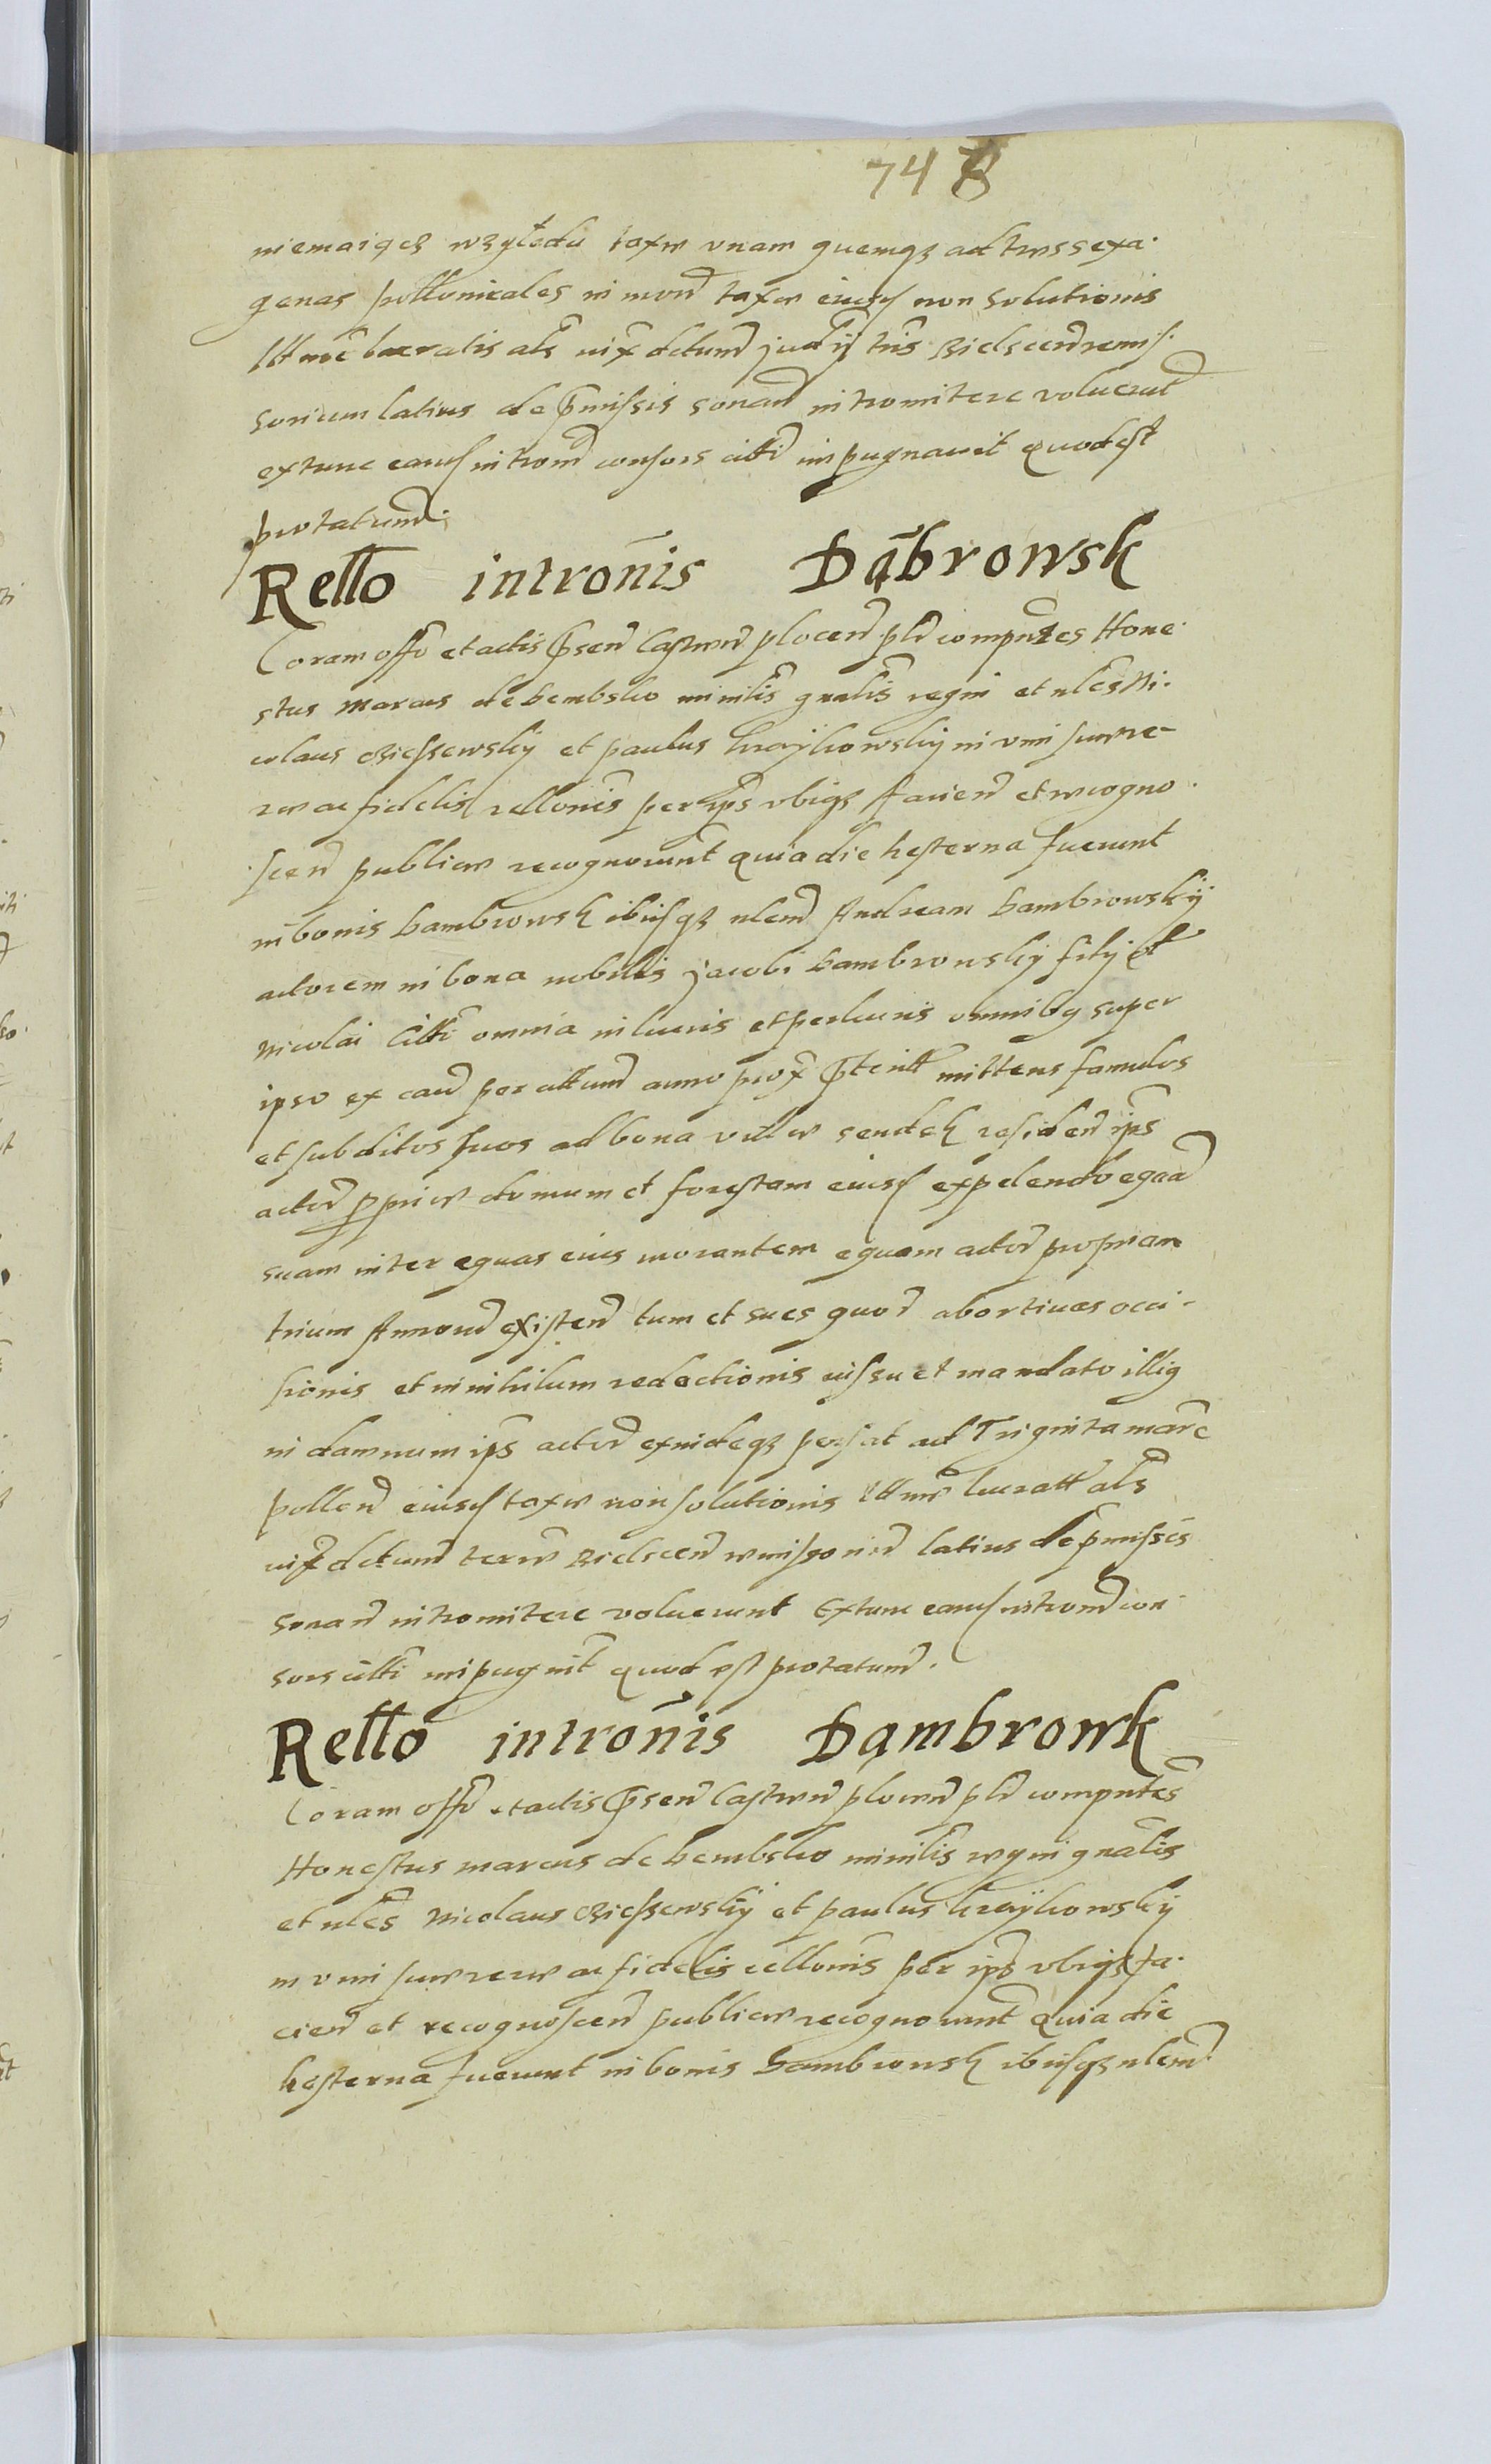 748
niemaiącz względu taxe unam quemqz ad tres sexa
genas pollonicales in mon taxe eiusd non solutionis
lucratis als vix dctum judij tris Bielscen remis
sorium latius de pmissis sonan intromitere voluerut
extunc eand introm consors citti impugnavit quod est
protatum
Rello intronis Dąbrowsk
Coram offo et actis psen Castren plocen pld compntes Hone
stus Marcus de bembsko minilis gnalis regni et nles Ni
colaus Bieſsewskij et paulus kraijkowskij in vim suae ve
re ac fidelis rellonis per ipos ubiqz facien et recogno
scen publice recognoverunt quia die hesterna fuerunt
in bonis Dambrowsk ibiisqz nlem Andream Dambrowskij
actorem in bona nobilis jacobi Dambrowskij filij et
Nicolai Citti omnia in lucris et perlucris omnibq super
ipso ex cau per attum anno prox pterit mittens famulos
et subditos suos ad bona ville sendek residen ips
actor pprie domum et forestam eiusd expelendo equam
suam inter equas eius morantem equam actor propriam
trium Annorum existen tum et sues quor abortivas occi
sionis et in nihilum redactionis iussu et mandato illiq
in damnum ips actor exindeqz persat ad Triginta marc
pollen eiusd taxe non solutionis lucratt als
vix dctum terre Bielscen remissorium latius de pmissis
sonan intromitere voluerunt Extunc eand introm con
sors citti impugnit quod est protatum.
Rello intronis Dąmbrowk
Coram offo et actis psen Castren plocen pld compntes
Honestus marcus de bembsko minilis regni gnalis
et nles Nicolaus Bieſsewskij et paulus kraijkowskij
in vim suae vere ac fidelis rellonis per ipos ubiqz fa
cien et recognoscen publice recognoverunt Quia die
hesterna fuerunt in bonis Dambrowsk ibiisqz nlem